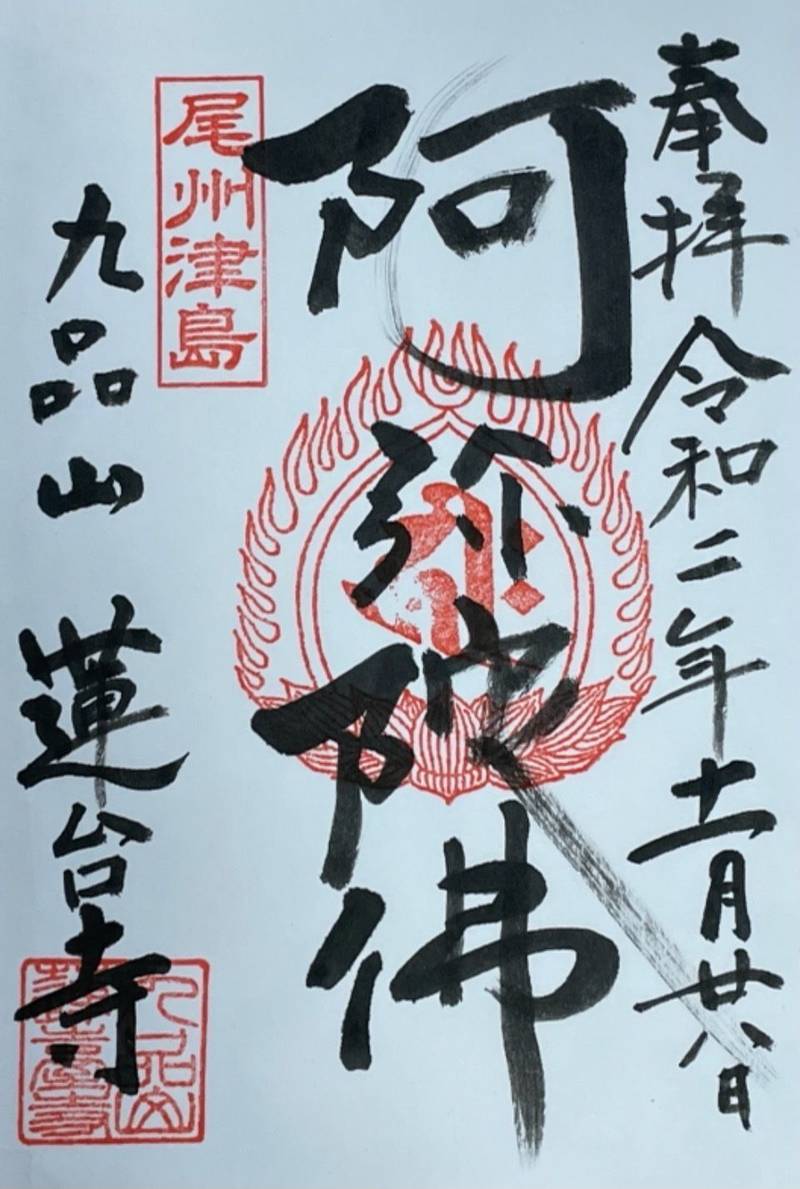 奉拝 令和二年十一月廿八日
阿弥陀佛
尾州津島
九品山 蓮台寺
九品山
蓮臺寺